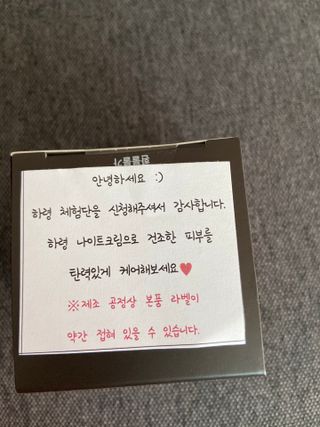 환불불가
안녕하세요 :)
하령 체험단을 신청해주셔서 감사합니다.
하령 나이트크림으로 건조한 피부를
탄력있게 케어해보세요♥
※제조 공정상 본품 라벨이
약간 접혀 있을 수 있습니다.